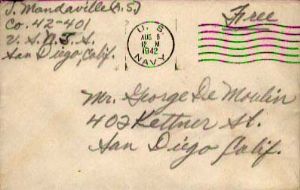 J. Mandaville (A.S.)
Co. 42-401
U.S.N.T.S.
San Diego, Calif.
Free
U. S.
AUG 5
12 M
1942
NAVY
Mr. George De Moulin
402 Kettner St.
San Diego Calif.